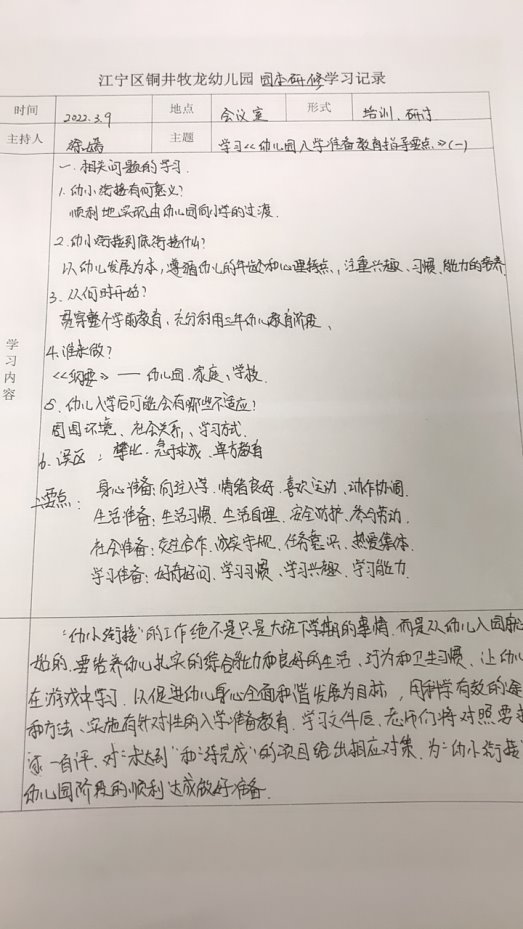 江宁区铜井牧龙幼儿园 园本研修学习记录
时间 2022.3.9 地点 会议室 形式 培训、研讨
主持人 主题 学习《幼儿园入学准备教育指导要点》(一)
学习内容
一、相关问题的学习
1.幼小衔接有何意义?
顺利地实现由幼儿园向小学的过渡.
2.幼小衔接到底衔接什么?
以幼儿发展为本,遵循幼儿的年龄和心理特点,注重兴趣、习惯、能力的培养
3.从何时开始?
贯穿整个学前教育、充分利用三年幼儿教育阶段、
4.谁来做?
《纲要》——幼儿园、家庭、学校.
5.幼儿入学后可能会有哪些不适应?
周围环境、社会关系、学习方式.
6.误区:攀比、急于求成、单方教育
二、要点: 身心准备:向往入学、情绪良好、喜欢运动、动作协调.
生活准备:生活习惯、生活自理、安全防护、参与劳动.
社会准备:交往合作、诚实守规、任务意识、热爱集体.
学习准备:好奇好问、学习习惯、学习兴趣、学习能力.
"幼小衔接"的工作绝不是只是大班下学期的事情,而是从幼儿入园就
始的.要培养幼儿扎实的综合能力和良好的生活、行为和卫生习惯、让幼儿
在游戏中学习.以促进幼儿身心全面和谐发展为目标,用科学有效的
和方法、实施有针对性的入学准备教育.学习文件后,老师们将对照要
逐一自评.对"未达到"和"待完成"的项目给出相应对策.为"幼小衔接"
幼儿园阶段的顺利达成做好准备.